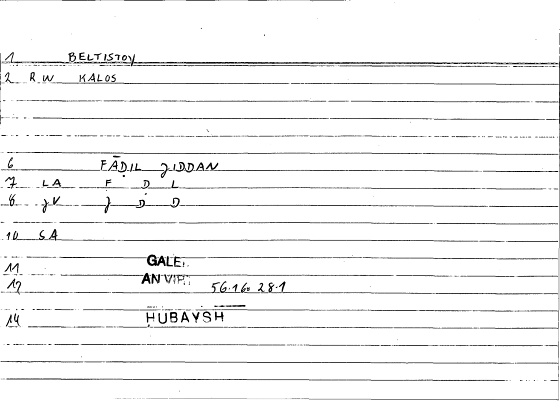 1 BELTISTOV
2 R.W KALOS
6 FĀḌIL JIDDAN
7 LA F Ḍ L
8 JV J D D
10 SA
11 GALE
12 AN VIR 56.16. 28.1
14 HUBAYSH